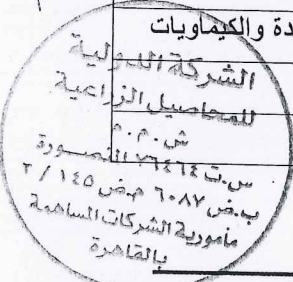 دة والكيماويات
الشركة الدولية
للمحاصيل الزراعية
ش.م.م
س.ت ٧٦٤٦٤ المنصورة
ب.ض ٦٠٨٧ م.ض ١٤٥ / ٢
مأمورية الشركات المساهمة
بالقاهرة